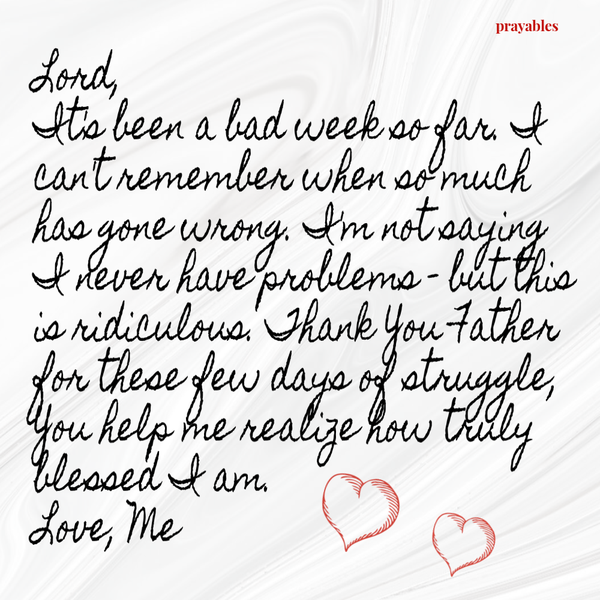 prayables
Lord,
It's been a bad week so far. I
can't remember when so much
has gone wrong. I'm not saying
I never have problems - but this
is ridiculous. Thank You Father
for these few days of struggle,
You help me realize how truly
blessed I am.
Love, Me